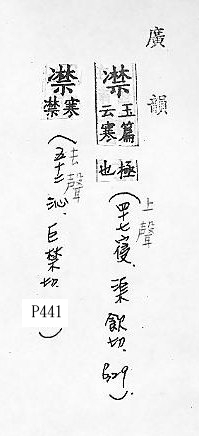 廣韻
凚
玉篇云寒極也
(上聲 四十七寑. 渠飲切. 329.)
凚
寒凚
(去聲 五十二沁. 巨禁切. P441)